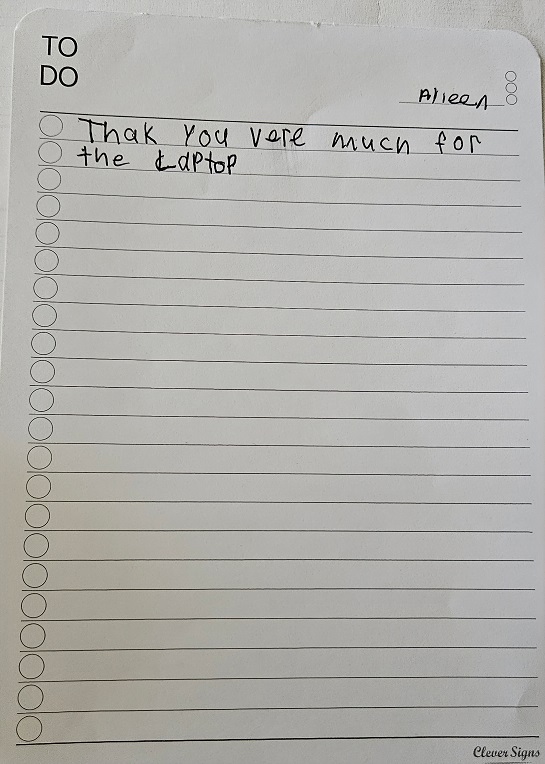 TO
DO
Alieen
Thak you vere much for
the Laptop
Clever Signs